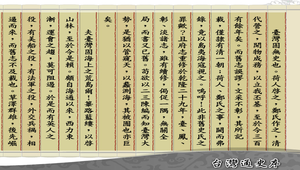 臺灣固無史也。荷人啟之,鄭氏作之,清
代營之,開物成務,以立我丕基,至於今三百
有餘年矣。而舊志誤謬,文采不彰,其所記
載,僅隸有清一朝;荷人、鄭氏之事,闕而弗
錄,竟以島夷海寇視之。嗚呼!此非舊史氏之
罪歟?且府志重修於乾隆二十九年,臺、鳳、
彰、淡諸志,雖有續修,侷促一隅,無關全
局,而書又已舊。苟欲以二三陳編而知臺灣大
勢,是猶以管窺天,以蠡測海,其被囿也亦巨
矣。
夫臺灣固海上之荒島爾!篳路藍縷,以啟
山林,至於今是賴。顧自海通以來,西力東
漸,運會之趨,莫可阻遏。於是而有英人之
役,有美船之役,有法軍之役,外交兵禍,相
逼而來,而舊志不及載也。草澤群雄,後先崛
台灣通史序